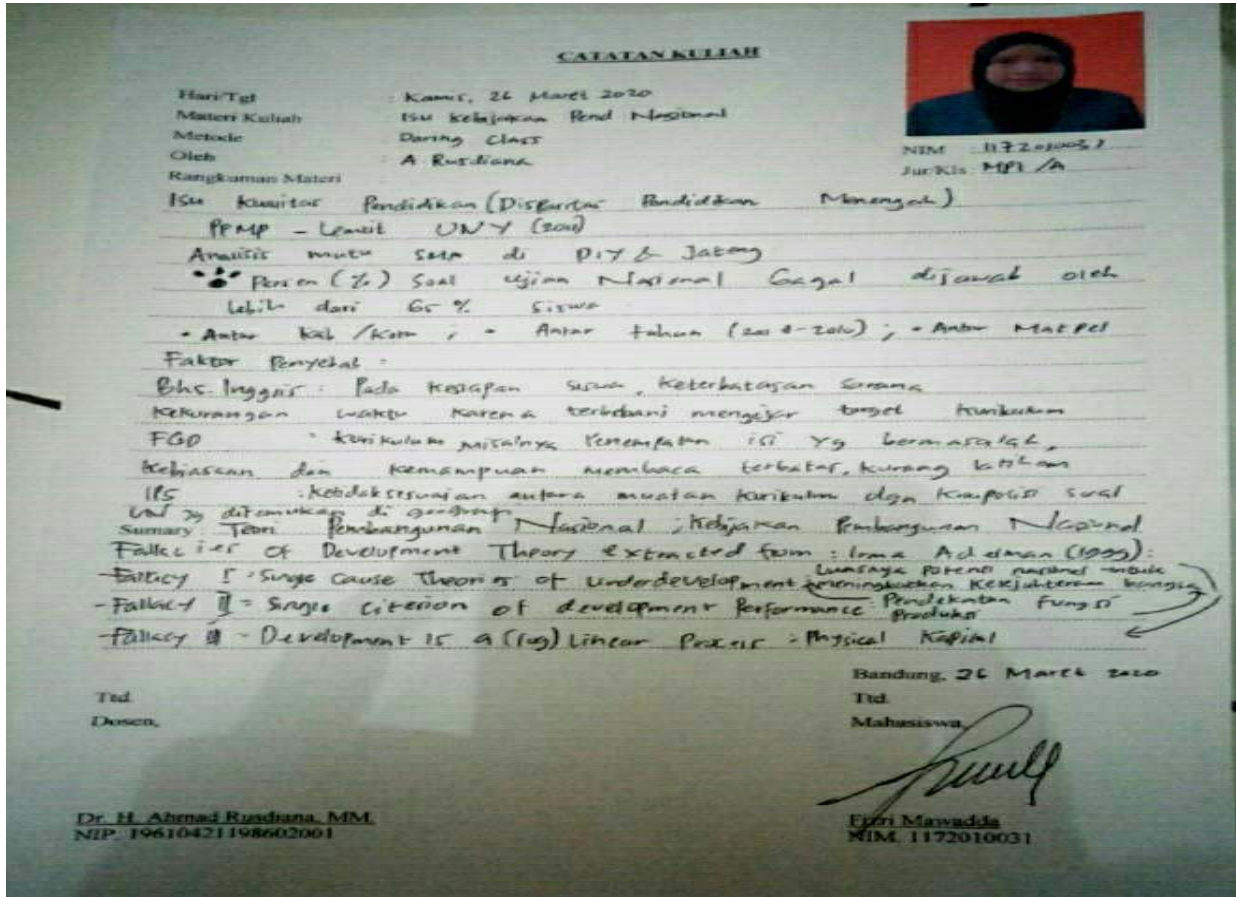 CATATAN KULIAH
Hari/Tgl : Kamis, 26 Maret 2020
Materi Kuliah Isu Kebijakan Pend Nasional
Metode Daring Class
Oleh A Rusdiana
NIM 1172010031
Jur/Kls MPI /A
Rangkuman Materi
Isu Kualitas Pendidikan (Disparitas Pendidikan Menengah)
PPMP - Lemlit UNY (2010)
Analisis mutu SMA di DIY & Jateng
Persen (%) Soal Ujian Nasional Gagal dijawab oleh
Lebih dari 65 % siswa
• Antar Kab/Kota ; • Antar tahun (2008-2010) ; • Antar Matpel
Faktor Penyebab :
Bhs. Inggris : Pada Kesiapan siswa, Keterbatasan Sarana
Kekurangan waktu Karena terbebani mengejar target Kurikulum
FGD : Kurikulum misalnya Penempatan isi yg bermasalah,
Kebiasaan dan Kemampuan membaca terbatas, Kurang latihan
IPS : Ketidaksesuaian antara muatan Kurikulum dgn Komposisi soal
UN yg ditemukan di geografi
Sumary Teori Pembangunan Nasional ; Kebijakan Pembangunan Nasional
Fallacies Of Development Theory extracted from : Irma Adelman (1999) :
- Fallacy I : Singe Cause Theories of Underdevelopment Luasnya potensi nasional untuk
meningkatkan Kesejahteraan bangsa
- Fallacy II = Singe Citerion of development Performance : Pendekatan Fungsi
Produksi
- Fallacy - Development Is a (log) Linear Process : Physical Kapital
Bandung, 26 Maret 2020
Ttd.
Dosen,
Ttd.
Mahasiswa,
Dr. H. Ahmad Rusdiana, MM.
NIP. 19610421198602001
Fitri Mawadda
NIM. 1172010031